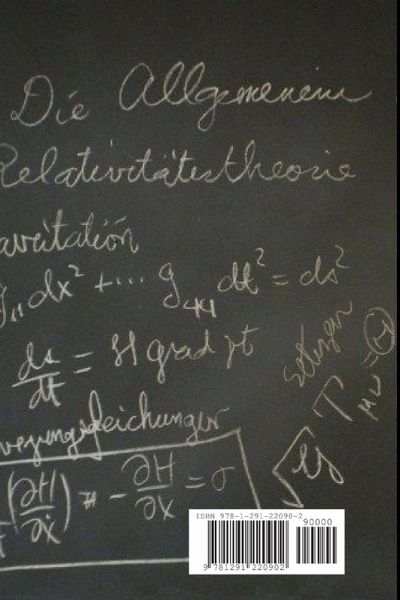 Die Allgemeinen
Relativitätstheorie
avitation
g₁₁dx² + ... g₄₄ dt² = ds²
ds/dt = H grad
(∂H/∂ẋ) = - ∂H/∂x = σ
T
μν =
ISBN 978-1-291-22090-2
90000
9 781291 220902